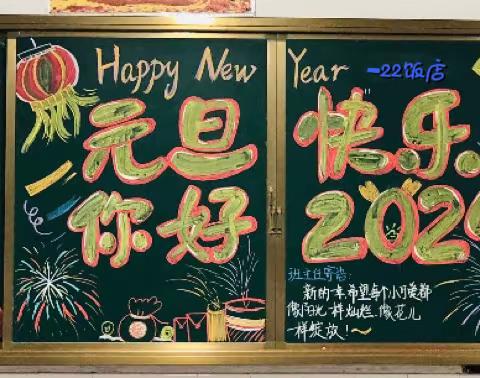 Happy New Year 一22饭店
元旦快乐
你好 202
班主任寄语:
新的一年,希望每个小可爱都
像阳光一样灿烂,像花儿
一样绽放!~